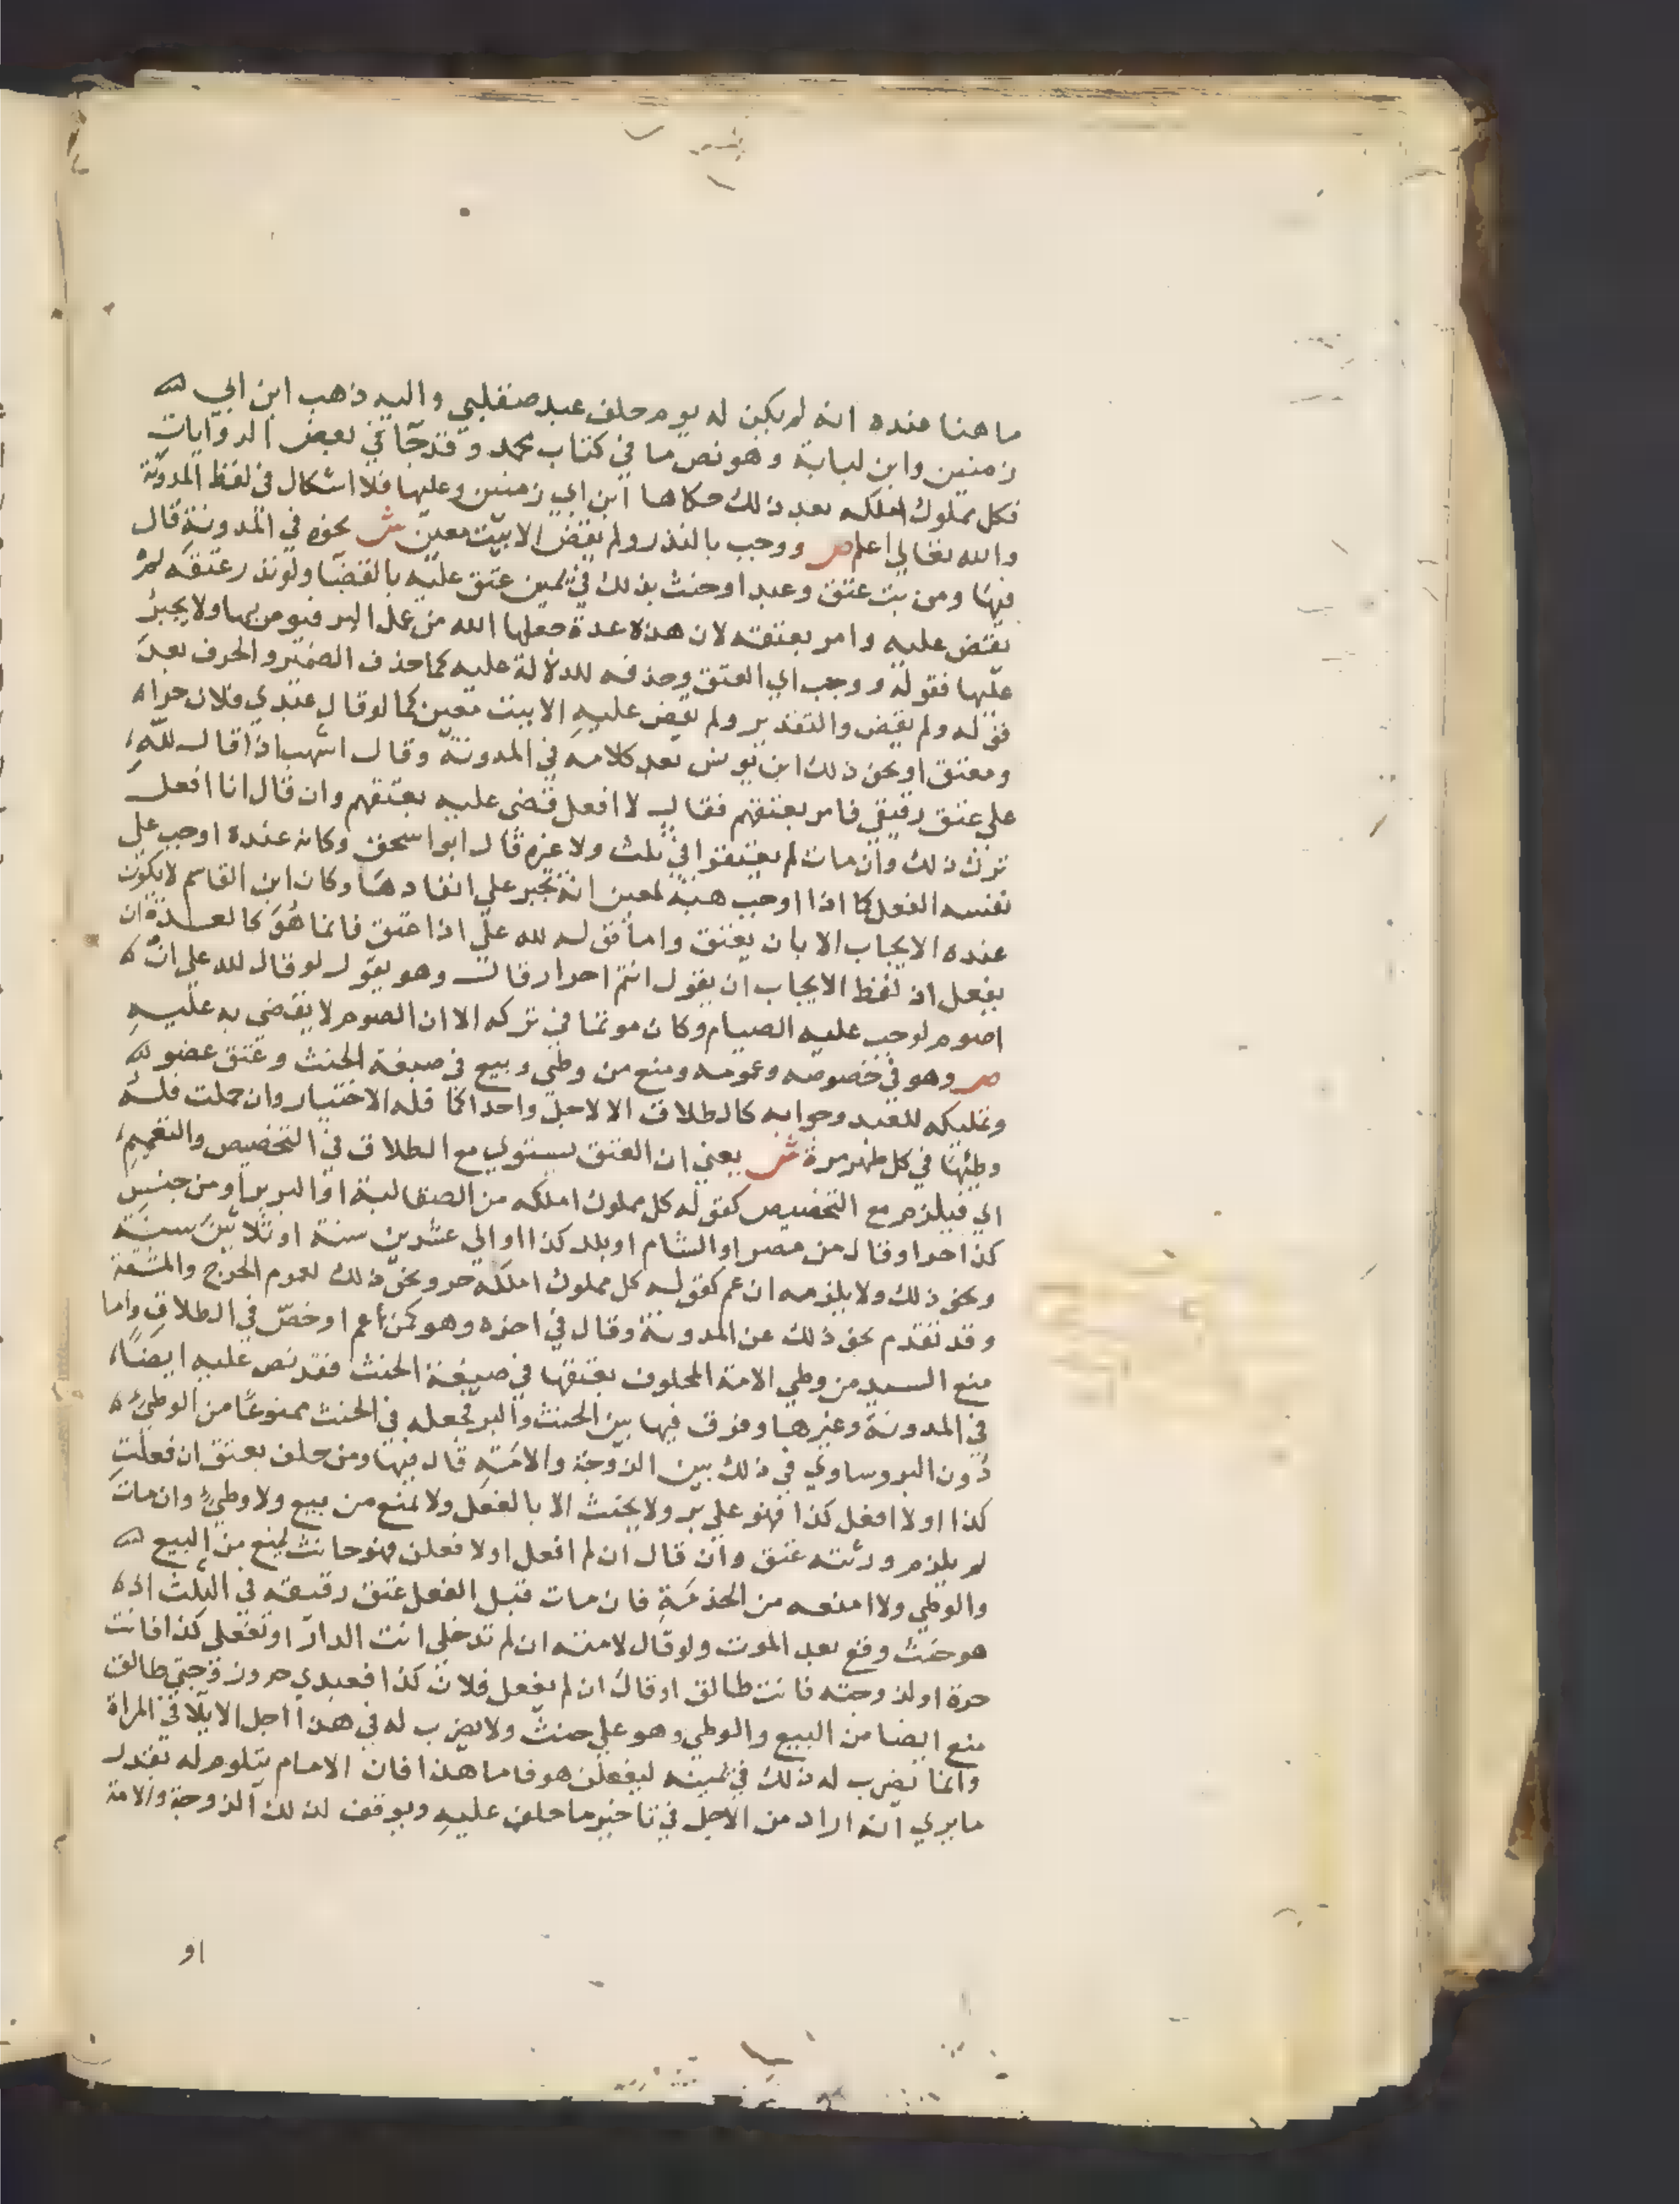 ما هنا عنده انه لم يكن له يوم حلف عبد صقلبي واليه ذهب ابن ابي
زمنين وابن لبابة وهو نص ما في كتاب محمد وقد جآ في بعض الروايات
فكل مملوك املكه بعد ذلك حكاها ابن ابي زمنين وعليها فلا اشكال في لفظ المدونة
والله تعالي اعلم ص ووجب بالنذر ولم يقض الا ببت معين ش نحوه في المدونة قال
فيها ومن بت عتق وعبد او حنث بذلك في يمين عتق عليه بالقضا ولو نذر عتقه لم
يقض عليه وامر بعتقه لان هذه عدة جعلها الله من عمل البر فيومر بها ولا يجبر
عليها فقوله ووجب اي العتق وحذفه للدلالة عليه كما حذف الضمير والحرف بعد
قوله ولم يقض والتقدير ولم يقض عليه الا ببت معين كما لو قال عبدي فلان حر او
ومعتق او نحو ذلك ابن يونس بعد كلامه في المدونة وقال اشهب اذا قال لله
علي عتق رقيقي فامر بعتقهم فقال لا افعل قضى عليه بعتقهم وان قال انا افعل
ترك ذلك وان مات لم يعتقوا في ثلث ولا غيره قال ابو اسحق وكانه عنده اوجب علي
نفسه الفعل كما اذا اوجب هبة لمعين انه يجبر علي انفادها وكان ابن القاسم لا يكون
عنده الايجاب الا بان يعتق واما قوله لله علي اذا عتق فانما هو كالعدة ان
يفعل اذ لفظ الايجاب ان يقول انتم احرار قال وهو يقول لو قال لله علي ان
اصوم لوجب عليه الصيام وكان موثما في تركه الا ان الصوم لا يقضى به عليه
ص وهو في خصوصه وعمومه ومنع من وطئ وبيع في صيغة الحنث وعتق عضو
وتمليكه للعبد وجوابه كالطلاق الا لاجل واحداكما فله الاختيار وان حملت فله
وطئها في كل طهر مرة ش يعني ان العتق يستوي مع الطلاق في التخصيص والتعميم
اي فيلزم مع التخصيص كقوله كل مملوك املكه من الصقالبة او البربر او من جنس
كذا حر او قال من مصر او الشام او بلد كذا او الي عشرين سنة او ثلاثين سنة
ونحو ذلك ولا يلزمه ان عم كقوله كل مملوك املكه حر ونحو ذلك لعموم الحرج والمشقة
وقد تقدم نحو ذلك عن المدونة وقال في اخره وهو كمن عم او خص في الطلاق واما
منع السيد من وطي الامة المحلوف بعتقها في صيغة الحنث فقد نص عليه ايضا
في المدونة وغيرها وفرق فيها بين الحنث والبر فجعله في الحنث ممنوعا من الوطئ
دون البر وساوي في ذلك بين الزوجة والامة قال فيها ومن حلف بعتق ان فعلت
كذا او لا افعل كذا فهو علي بر ولا يحنث الا بالفعل ولا يمنع من بيع ولا وطئ وان مات
لم يلزم ورثته عتق وان قال ان لم افعل او لافعلن فهو حانث يمنع من البيع
والوطي ولا امنعه من الخدمة فان مات قبل الفعل عتق رقيقه في الثلث اذ
هو حنث وقع بعد الموت ولو قال لامته ان لم تدخلي انت الدار او تفعلي كذا فانت
حرة او لزوجته فانت طالق او قال ان لم يفعل فلان كذا فعبدي حر وزوجتي طالق
منع ايضا من البيع والوطي وهو علي حنث ولا يضرب له في هذا اجل الايلا في المراة
وانما يضرب له ذلك في يمينه ليفعلن هو فاما هذا فان الامام يتلوم له بقدر
ما يري انه اراد من الاجل في تاخير ما حلف عليه ويوقف لذلك الزوجة والامة
او